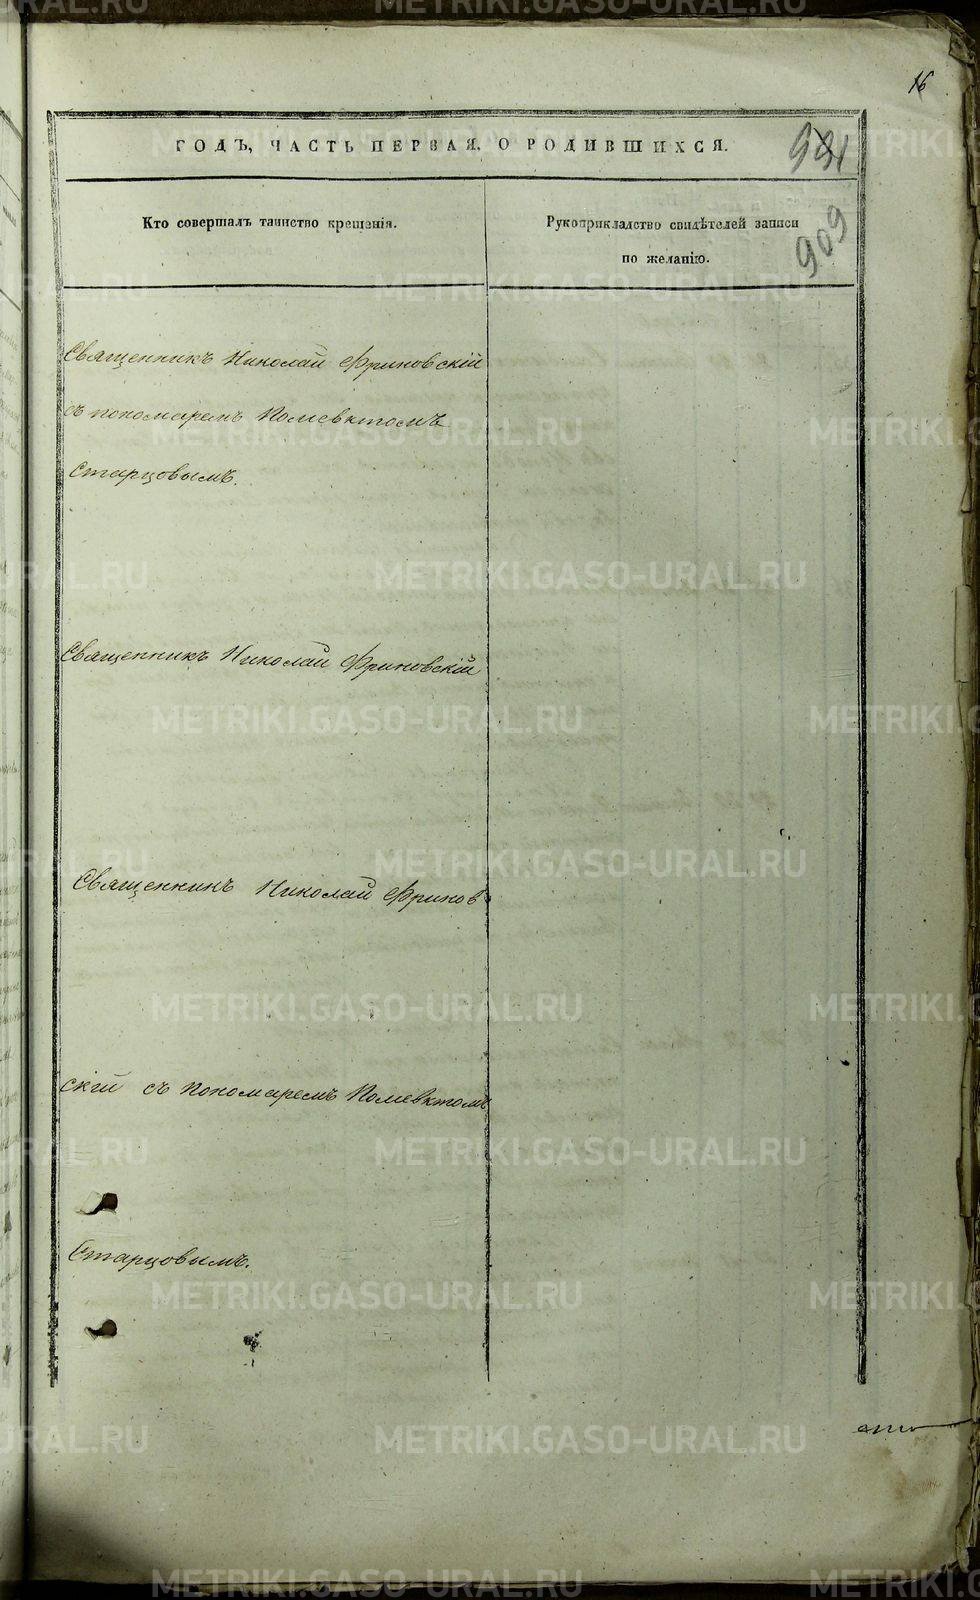 16
ГОДЪ, ЧАСТЬ ПЕРВАЯ, О РОДИВШИХСЯ.
931
909
Кто совершалъ таинство крещенія.
Рукоприкладство свидѣтелей записи
по желанію.
Священникъ Николай Фриновскій
съ пономаремъ Полиевктомъ
Старцовымъ.
Священникъ Николай Фриновскій
Священникъ Николай Фринов
скій съ пономаремъ Полиевктомъ
Старцовымъ.
METRIKI.GASO-URAL.RU